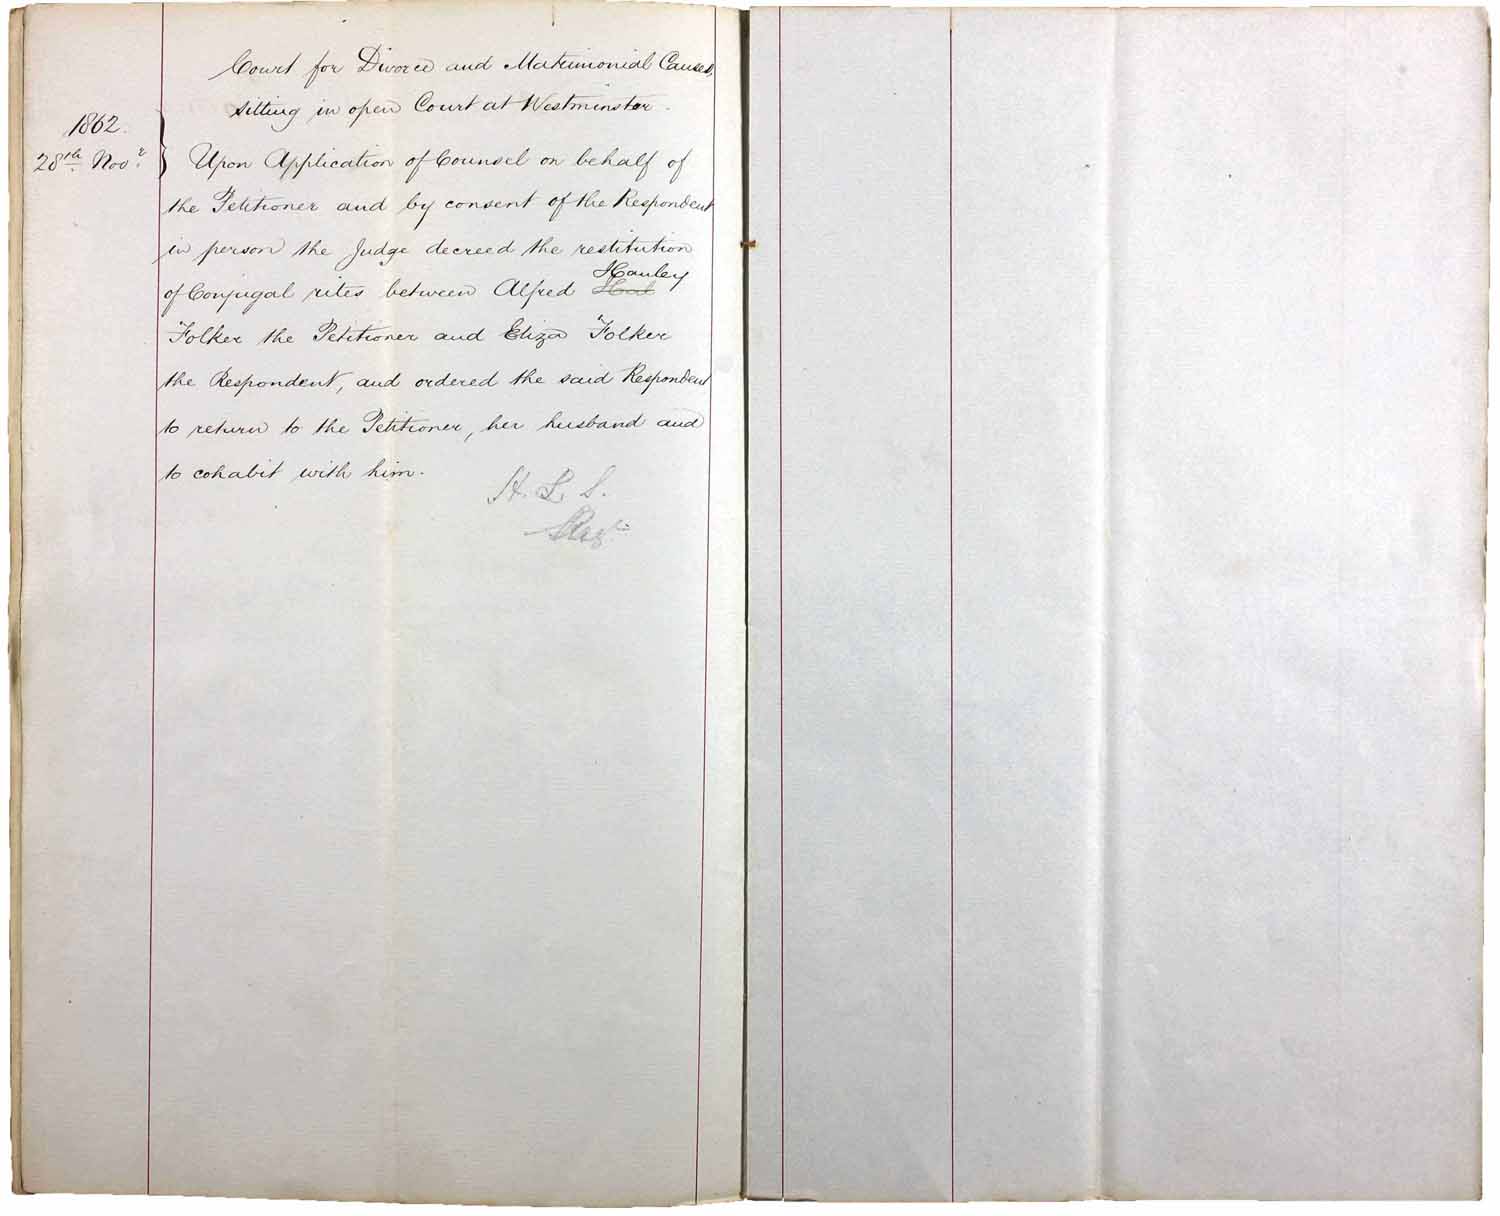 Court for Divorce and Matrimonial Causes,
sitting in open Court at Westminster.
1862.
28th Novr
Upon Application of Counsel on behalf of
the Petitioner and by consent of the Respondent
in person the Judge decreed the restitution
Hanley
of Conjugal rites between Alfred
Folker the Petitioner and Eliza Folker
the Respondent, and ordered the said Respondent
to return to the Petitioner, her husband and
to cohabit with him.
H. L. S.